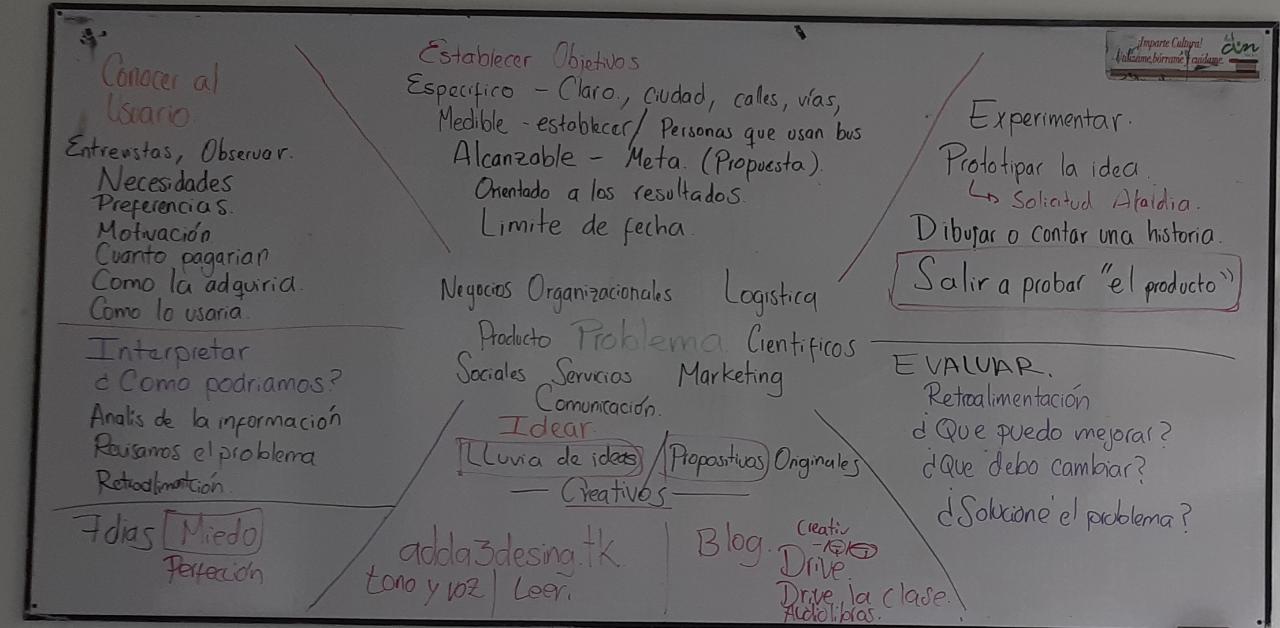 Conocer al
Usuario.
Entrevistas, Observar.
Necesidades
Preferencias.
Motivación
Cuanto pagarian
Como la adquiria.
Como lo usaria.
Interpretar
¿Como podriamos?
Analis de la información
Revisamos el problema
7 dias Miedo
Perfección
Establecer Objetivos
Especifico - Claro., ciudad, calles, vías,
Medible - establecer/ Personas que usan bus
Alcanzable - Meta. (Propuesta).
Orientado a los resultados.
Limite de fecha.
Negocios Organizacionales Logistica
Producto Problema Cientificos
Sociales Servicios Marketing
Comunicación.
Idear
Lluvia de ideas / Propositivos Originales
Creativos
adda3desing.tk.
tono y voz | Leer.
Blog.
Creativ
Drive
Drive, la clase.
Audiolibros.
¡Imparte Cultura!
Utilízame, bórrame y cuídame
Experimentar.
Prototipar la idea.
↳ Solicitud Alcaldia.
Dibujar o contar una historia.
Salir a probar "el producto"
EVALUAR.
Retroalimentación
¿Que puedo mejorar?
¿Que debo cambiar?
¿Solucione el problema?